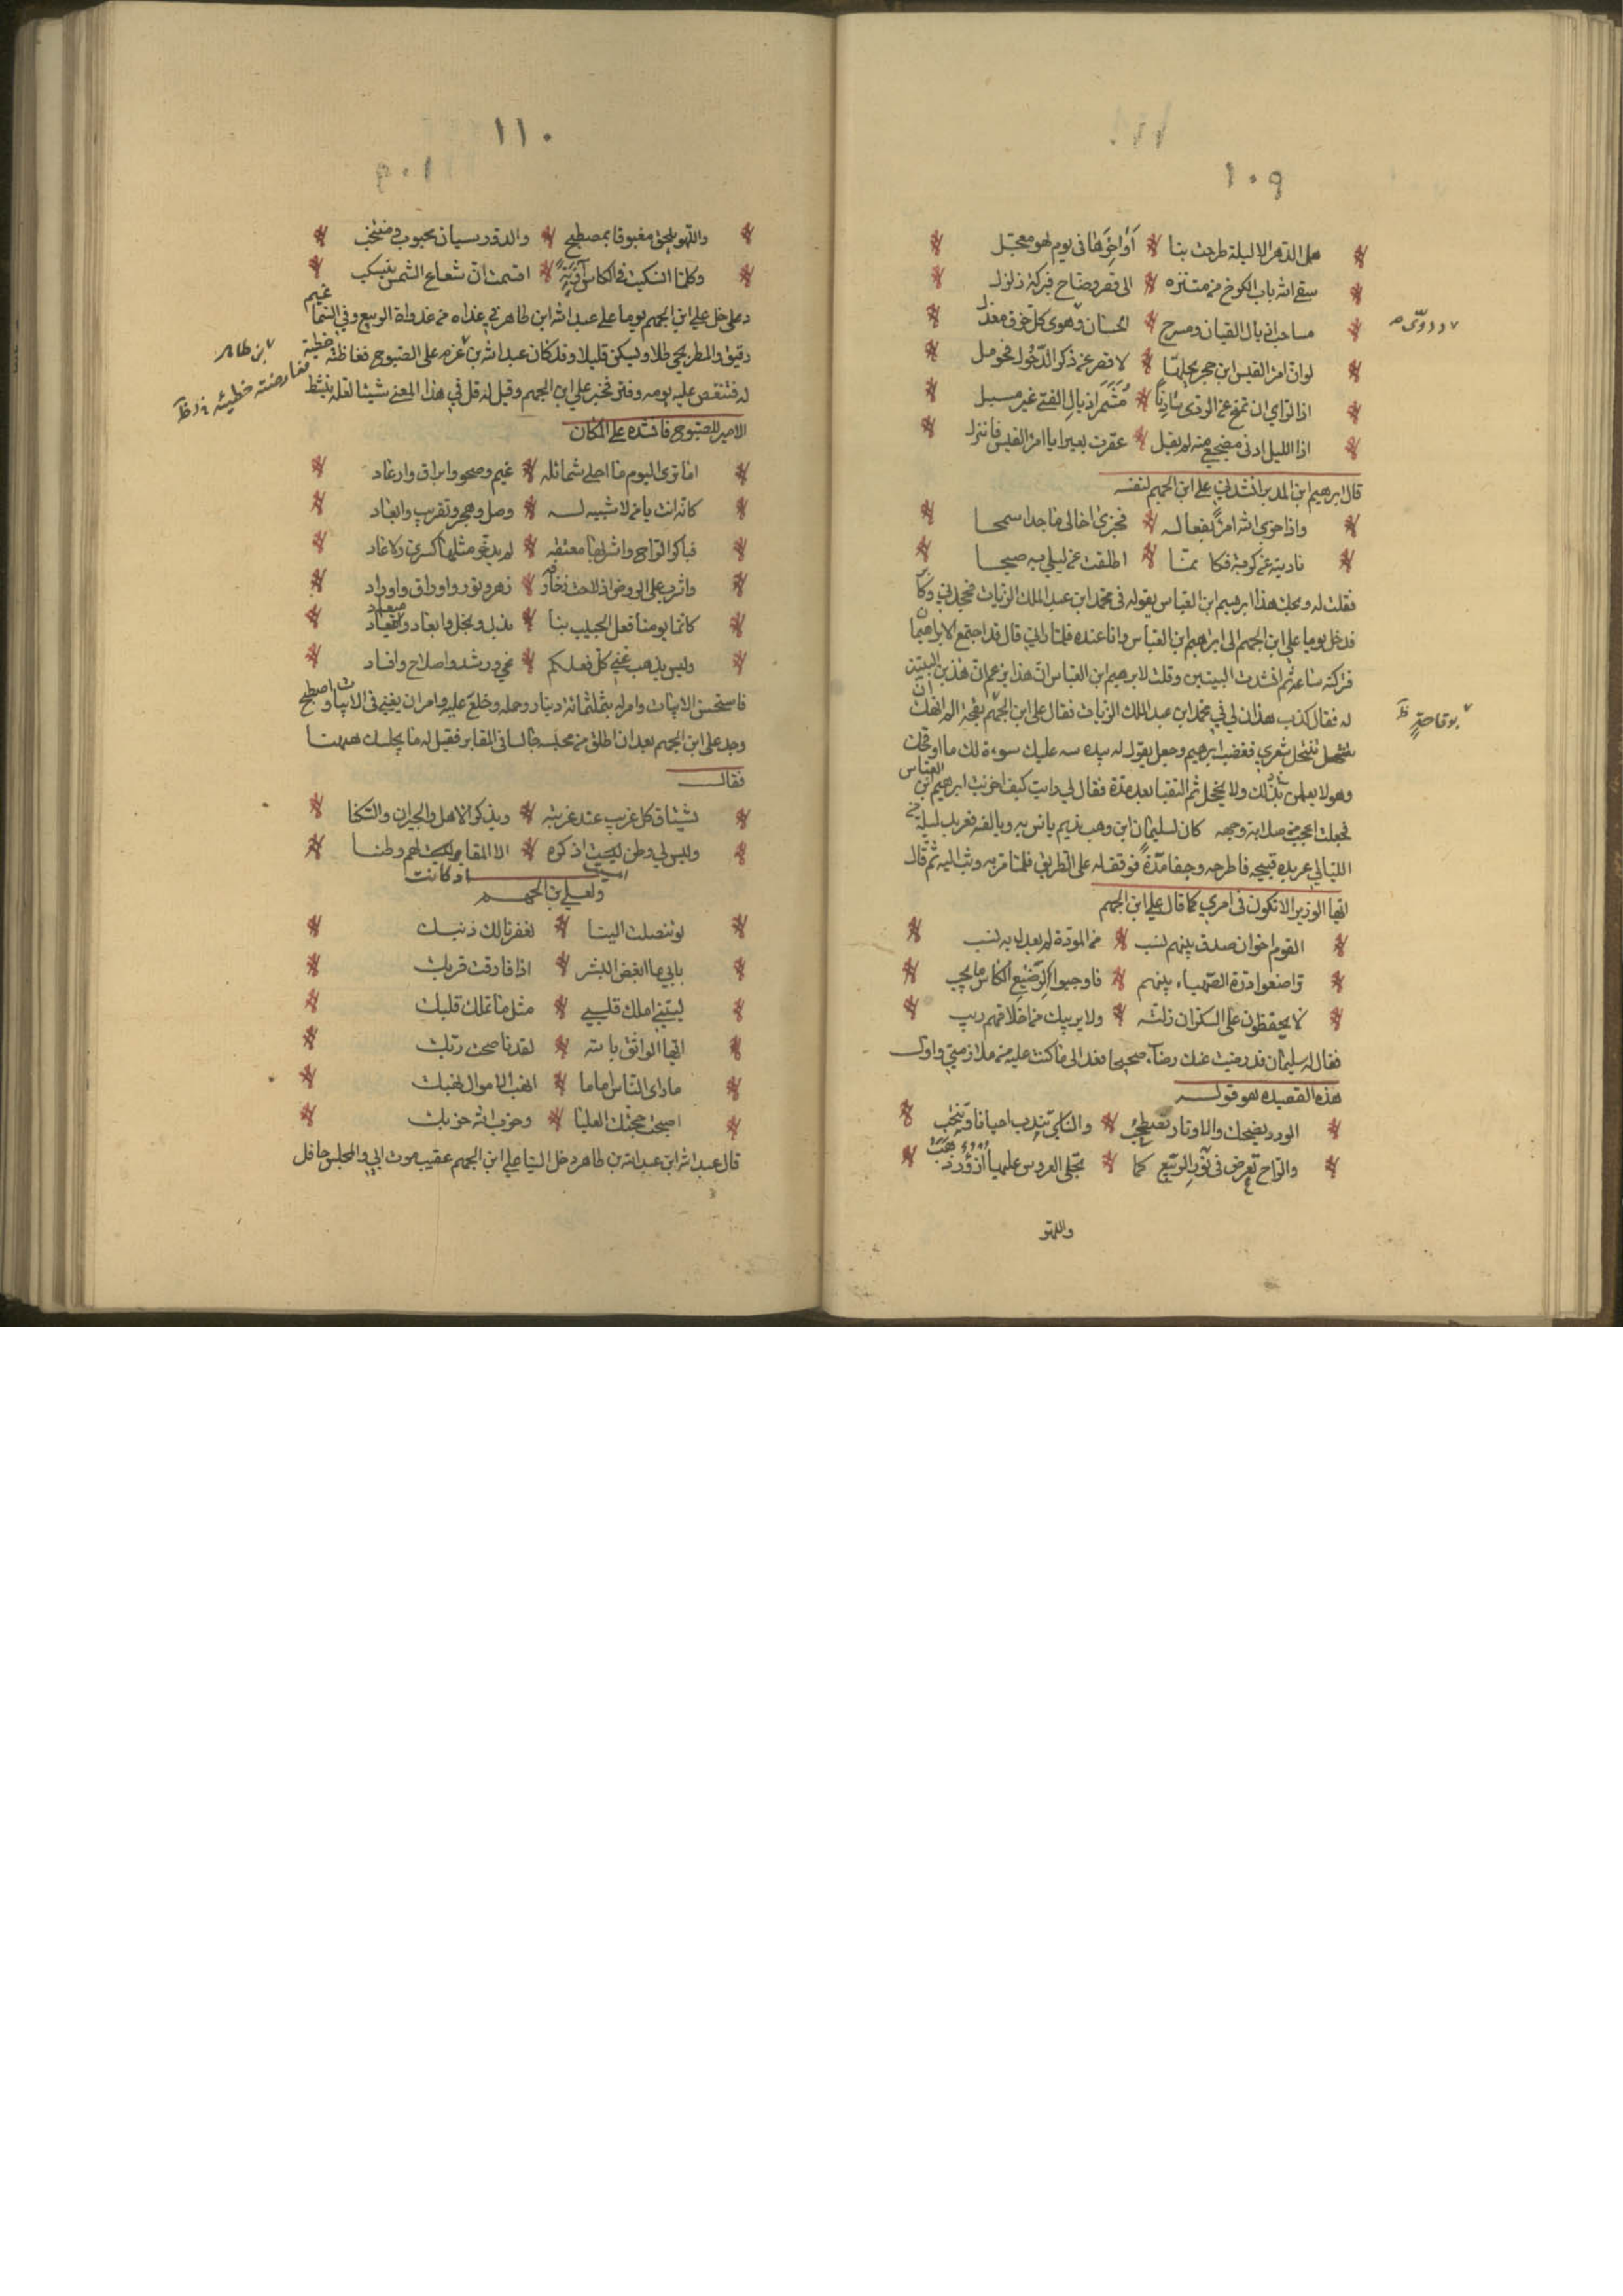 ١٠٩
هل الدهر الا ليلة طرحت بنا اواخرها في يوم لهو معجل
سقى الله باب الكرخ من متنزه الى قصر وضاح فبركة زلزل
مساحب اذيال القيان ومسرح الحسان ومهوى كل خرق معذل
لو ان امرؤ القيس ابن حجر يحلها لاقصر عن ذكر الدخول فحومل
اذا لراي ان يمنح عن الورى شاذنا مُشَمَر اذيال الفتى غير مسبل
اذا الليل ادنى مضجعي منه لم يقل عقرت بعيري يا امرؤ القيس فانزل
قال ابرهيم ابن المدبر انشدني علي ابن الجهم لنفسه
واذا جزى الله امرءً بفعاله فجزى اخا لي ماجدا سمحا
ناديته عن كربة فكانما اطلقت عن ليلي به صبحا
فقلت له ويحك هذا ابرهيم ابن العباس يقوله في محمد ابن عبد الملك الزيات فجحدني وكابر
فدخل يوما علي ابن الجهم الى ابراهيم ابن العباس وانا عنده فلما راني قال قد اجتمع الابراهيمان
فتركته ساعة ثم انشدت البيتين وقلت لابرهيم ابن العباس ان هذا يزعم ان هذين البيتين
له فقال كذب هذان لي في محمد ابن عبد الملك الزيات فقال علي ابن الجهم بقحة الم انهك ان
تنتحل شعري فغضب ابرهيم وجعل يقول له بيده سه عليك سوءة لك ما اوقحك
وهو لا يعلم بذلك ولا يخجل ثم التقينا بعد مدة فقال لي رايت كيف اخزيت ابرهيم ابن العباس
فجعلت اعجب من صلابة وجهه كان لسليمان ابن وهب نديم يانس به ويالفه فعربد ليلة من
الليالي عربدة قبيحه فاطرحه وجفا مدةً فوقف له على الطريق فلما مر به وثب اليه ثم قال
ايها الوزير الا تكون في امري كما قال علي ابن الجهم
القوم اخوان صدق بينهم نسب من المودة لم يعدل به نسب
تراضعوا درة الصهباء بينهم فاوجبوا لرضيع الكاس ما يجب
لا يحفظون على السكران زلته ولا يريبك من اخلاقهم ريب
فقال له سليمان قد رضيت عنك رضآء صحيحا فعد الى ما كنت عليه من ملازمتي واول
هذه القصيده هو قوله
الورد يضحك والاوتار تصطخب والناي يندب احيانا وينتحب
والراح تعرض في نور الربيع كما تجلى العروس عليها الدر والذهب
واللهو
بوقاحةٍ ظ
١١٠
واللهو يلحق مغبوقا بمصطبح والدور سيان محبوب ومنتخب
وكلما انسكبت في الكاس آونةً اقسمت ان شعاع الشمس ينسكب
دخل علي ابن الجهم يوما على عبد الله ابن طاهر في غداه من غدواة الربيع وفي السماء غيم
رقيق والمطر يجي قليلا ويسكن قليلا وقد كان عبد الله بن عزم على الصبوح فغاظته حظية
له فتنغص عليه يومه وفتر فخبر علي ابن الجهم وقيل له قل في هذا المعنى شيئا لعله ينشط
الامير للصبوح فانشده على المكان
اما ترى اليوم ما احلى شمائله غيم وصحو وابراق وارعاد
كانه انت يا من لا شبيه له وصل وهجر وتقريب وابعاد
فباكر الراح واشربها معتقه لم يدخر مثلها كسرى ولا عاد
واشرب على الروض اذ لاحت زخارفه زهر ونور واوراق واوراد
كانما يومنا فعل الحبيب بنا بذل وبخل وايعاد وميعاد
وليس يذهب عني كل فعلكم غي ورشد واصلاح وافساد
فاستحسن الابيات وامر له بثلثمائة دينار وحمله وخلع عليه وامر ان يغنى في الابيات واصطبح
وجد علي ابن الجهم بعد ان اطلق من محبسه جالسا في المقابر فقيل له ما يجلسك ههنا
فقال
يشتاق كل غريب عند غربته ويذكر الاهل والجيران والسكنا
وليس لي وطن امسيت اذكره الا المقابر اذ كانت لهم وطنا
ولعلي بن الجهم
لو تنصلت الينا لغفرنا لك ذنبك
بابي ما ابغض البشر اذا فارقت قربك
ليتني املك قلبي مثل ما تملك قلبك
ايها الواثق بالله لقد ناصحت ربك
ما راى الناس اماما انهب الاموال نهبك
اصبحت حجتك العليا وحزب الله حزبك
قال عبد الله ابن عبد الله بن طاهر دخل الينا علي ابن الجهم عقيب موت ابي والمجلس حافل
بن طاهر